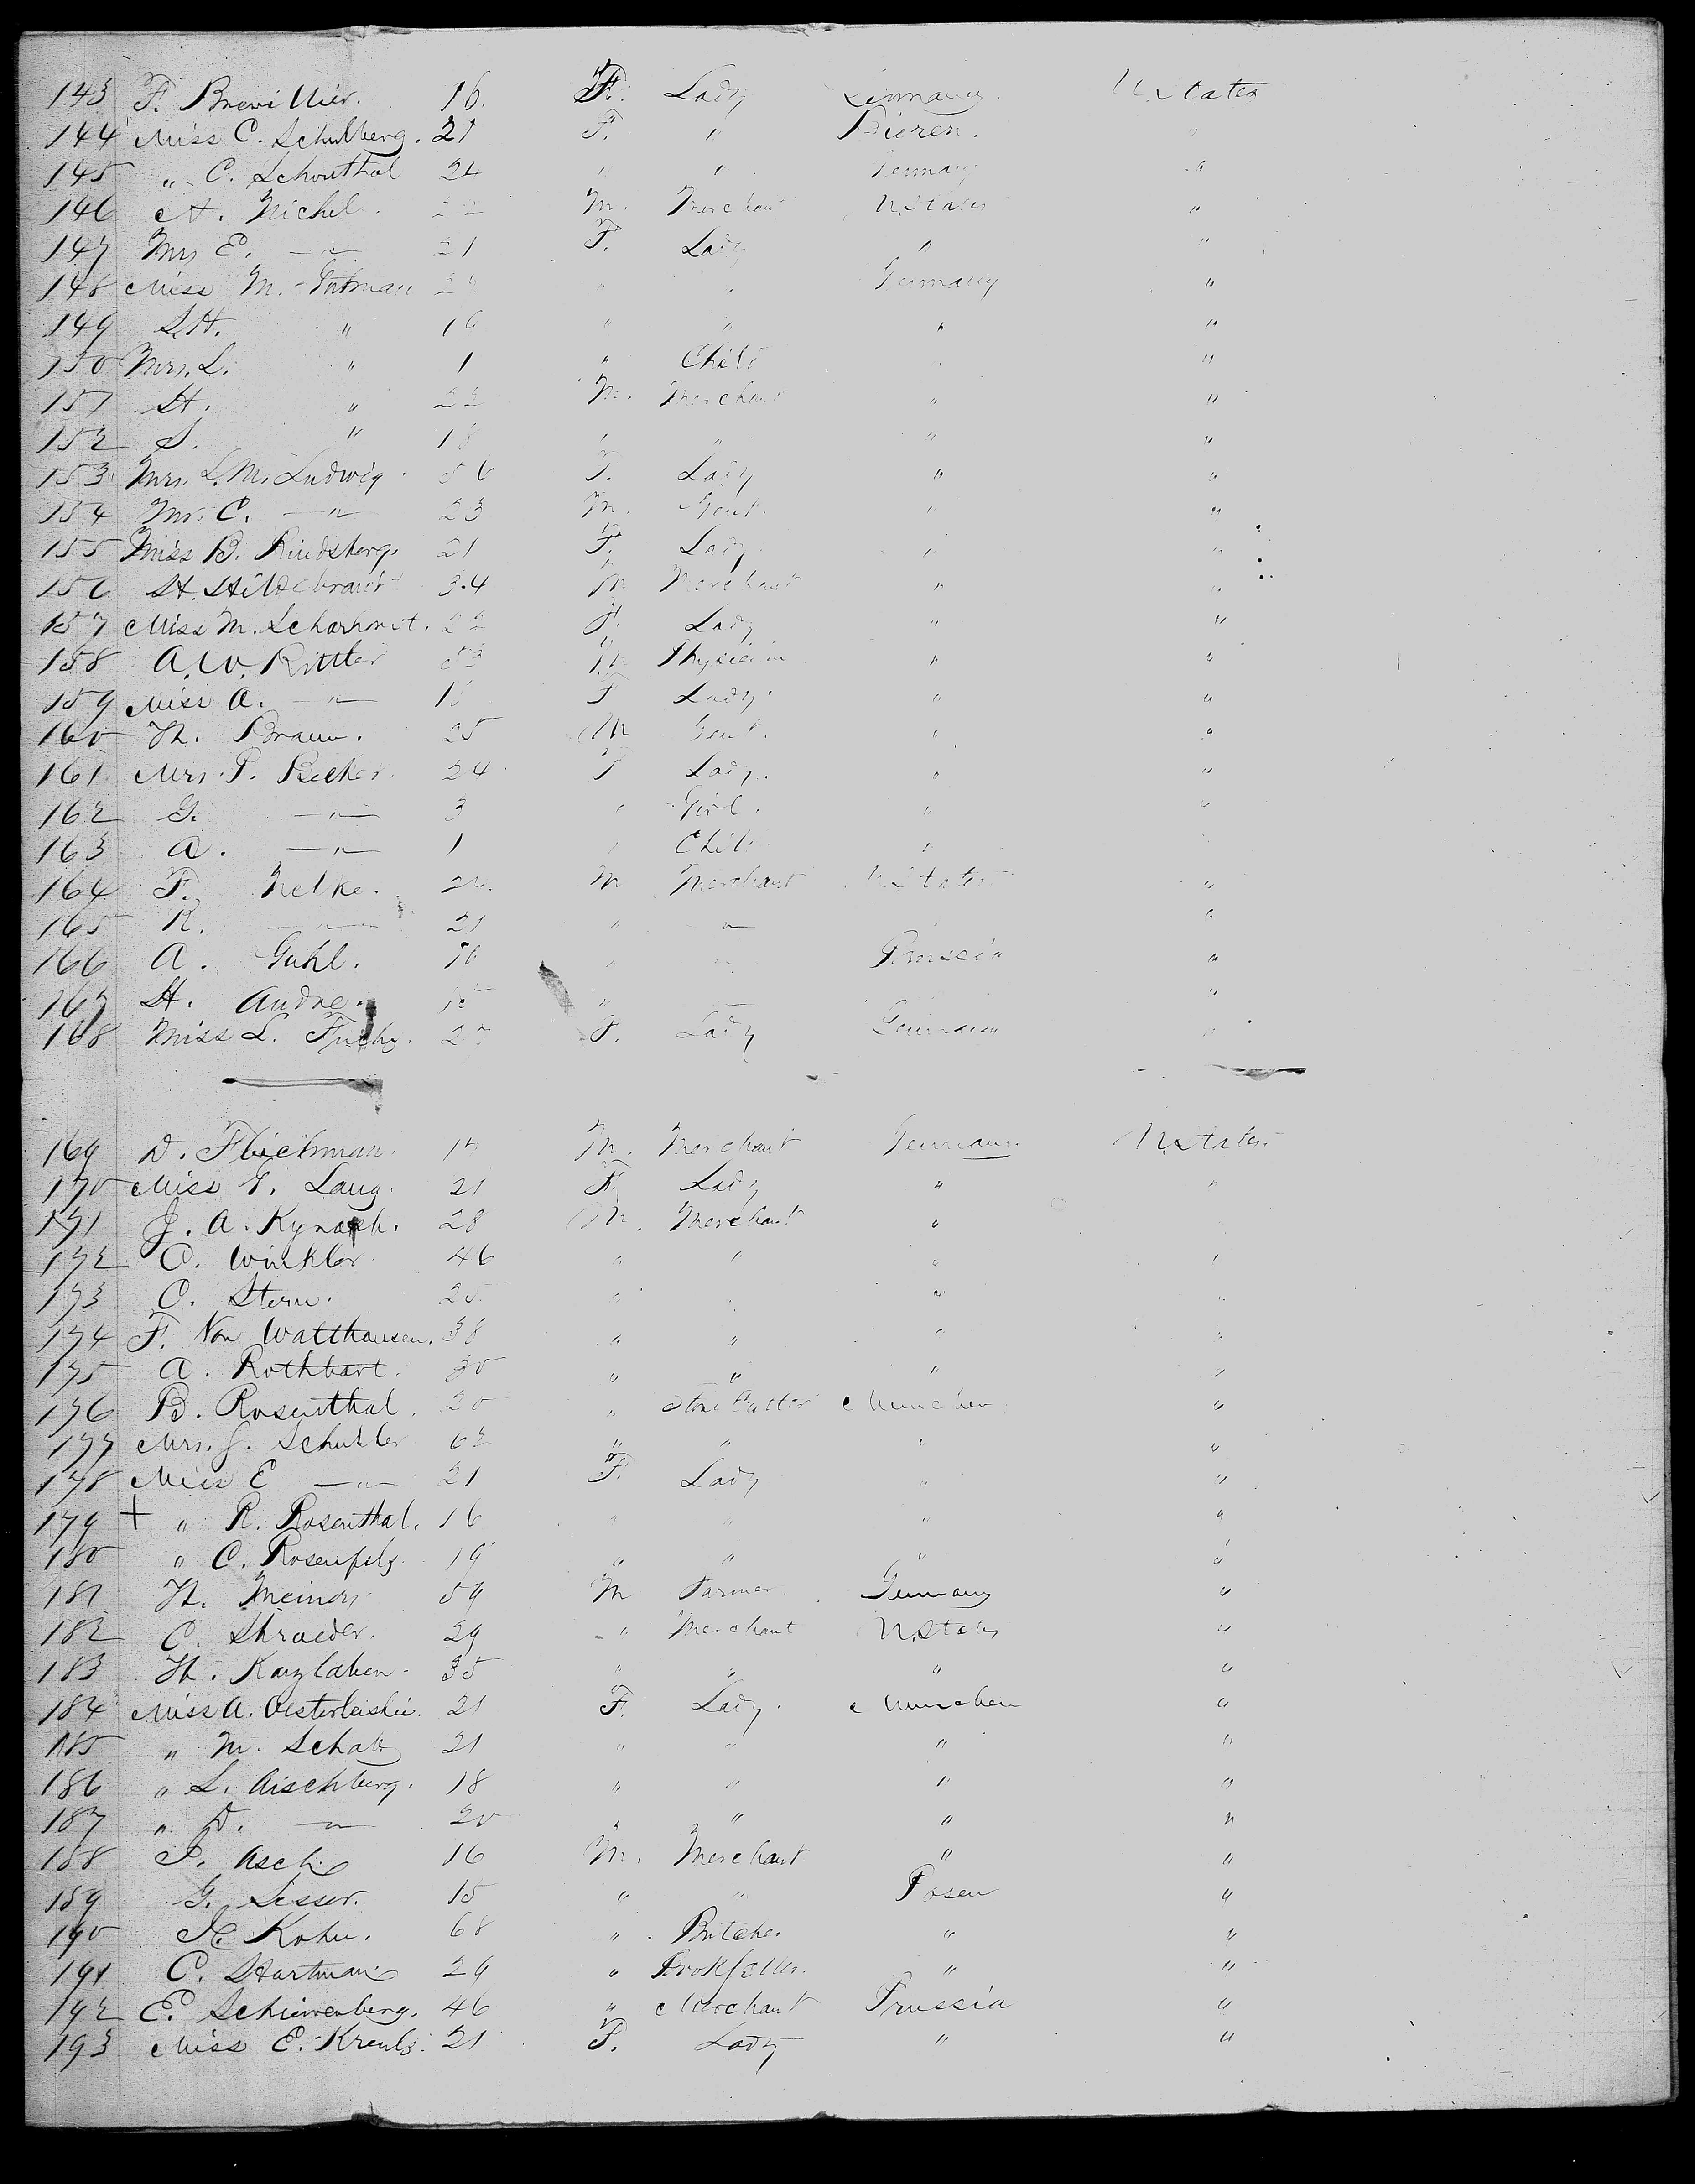 143 F. Brevillier. 16. F. Lady Germany U. States
144 Miss C. Schulberg. 21 F. " Düren. "
145 " C. Schonthal 24 " " Germany "
146 A. Michel. 22 M. Merchant U. States "
147 Mrs E. —"— 21 F. Lady " "
148 Miss M. Gutman " " Germany "
149 S.H. " 16 " " " "
150 Mrs. L. " 1 " Child "
151 H. " 22 M. Merchant " "
152 S. " 18 " " " "
153 Mrs. L. M. Ludwig 56 F. Lady " "
154 Mr. C. —"— 23 M. Gent. " "
155 Miss B. Rindsberg. 21 F. Lady. " "
156 H. Hildebrandt 34 M Merchant " "
157 Miss M. Scharhorst. 22 F. Lady " "
158 A. W. Rittler 53 M Physician " "
159 Miss A. —"— F Lady. " "
160 H. Braun. 25 M Gent. " "
161 Mrs. P. Becker. 24 F Lady. " "
162 G. —"— 3 " Girl. " "
163 A. —"— 1 " Child "
164 F. Nelke. M Merchant U. States "
165 R. —"— 21 " " "
166 A. Guhl. " " Prussia "
167 H. Andre. " "
168 Miss L. 27 F. Lady "
169 D. Fleichman. M. Merchant Germany U. States
170 Miss E. Lang. 21 F. Lady " "
171 J. A. Kynoch. 28 M. Merchant "
172 C. Winkler 46 " " " "
173 C. Stern. 25 " " "
174 F. Von Watthausen. 38 " " " "
175 A. Rothbart. 30 " " " "
176 B. Rosenthal. 20 " Munchen "
177 Mrs. J. Schuller 62 " " " "
178 Miss E —"— 21 F. Lady " "
179 + " R. Rosenthal. 16 " " " "
180 " C. Rosenfels 19 " " " "
181 H. Meiners 59 M Farmer. Germany "
182 C. Shroeder. 29 " Merchant U. States "
183 H. 35 " " " "
184 Miss A. 21 F. Lady. Munchen "
185 " M. Schatz 21 " " " "
186 " L. Aischberg. 18 " " " "
187 " D. —"— 20 " " " "
188 I. Asch. 16 M. Merchant " "
189 G. Lesser. 15 " " Posen "
190 Kohn. 68 " Butcher " "
191 C. Hartman 29 " " "
192 E. Schierenberg. 46 " Merchant Prussia "
193 Miss E. Kreutz. 21 F. Lady " "